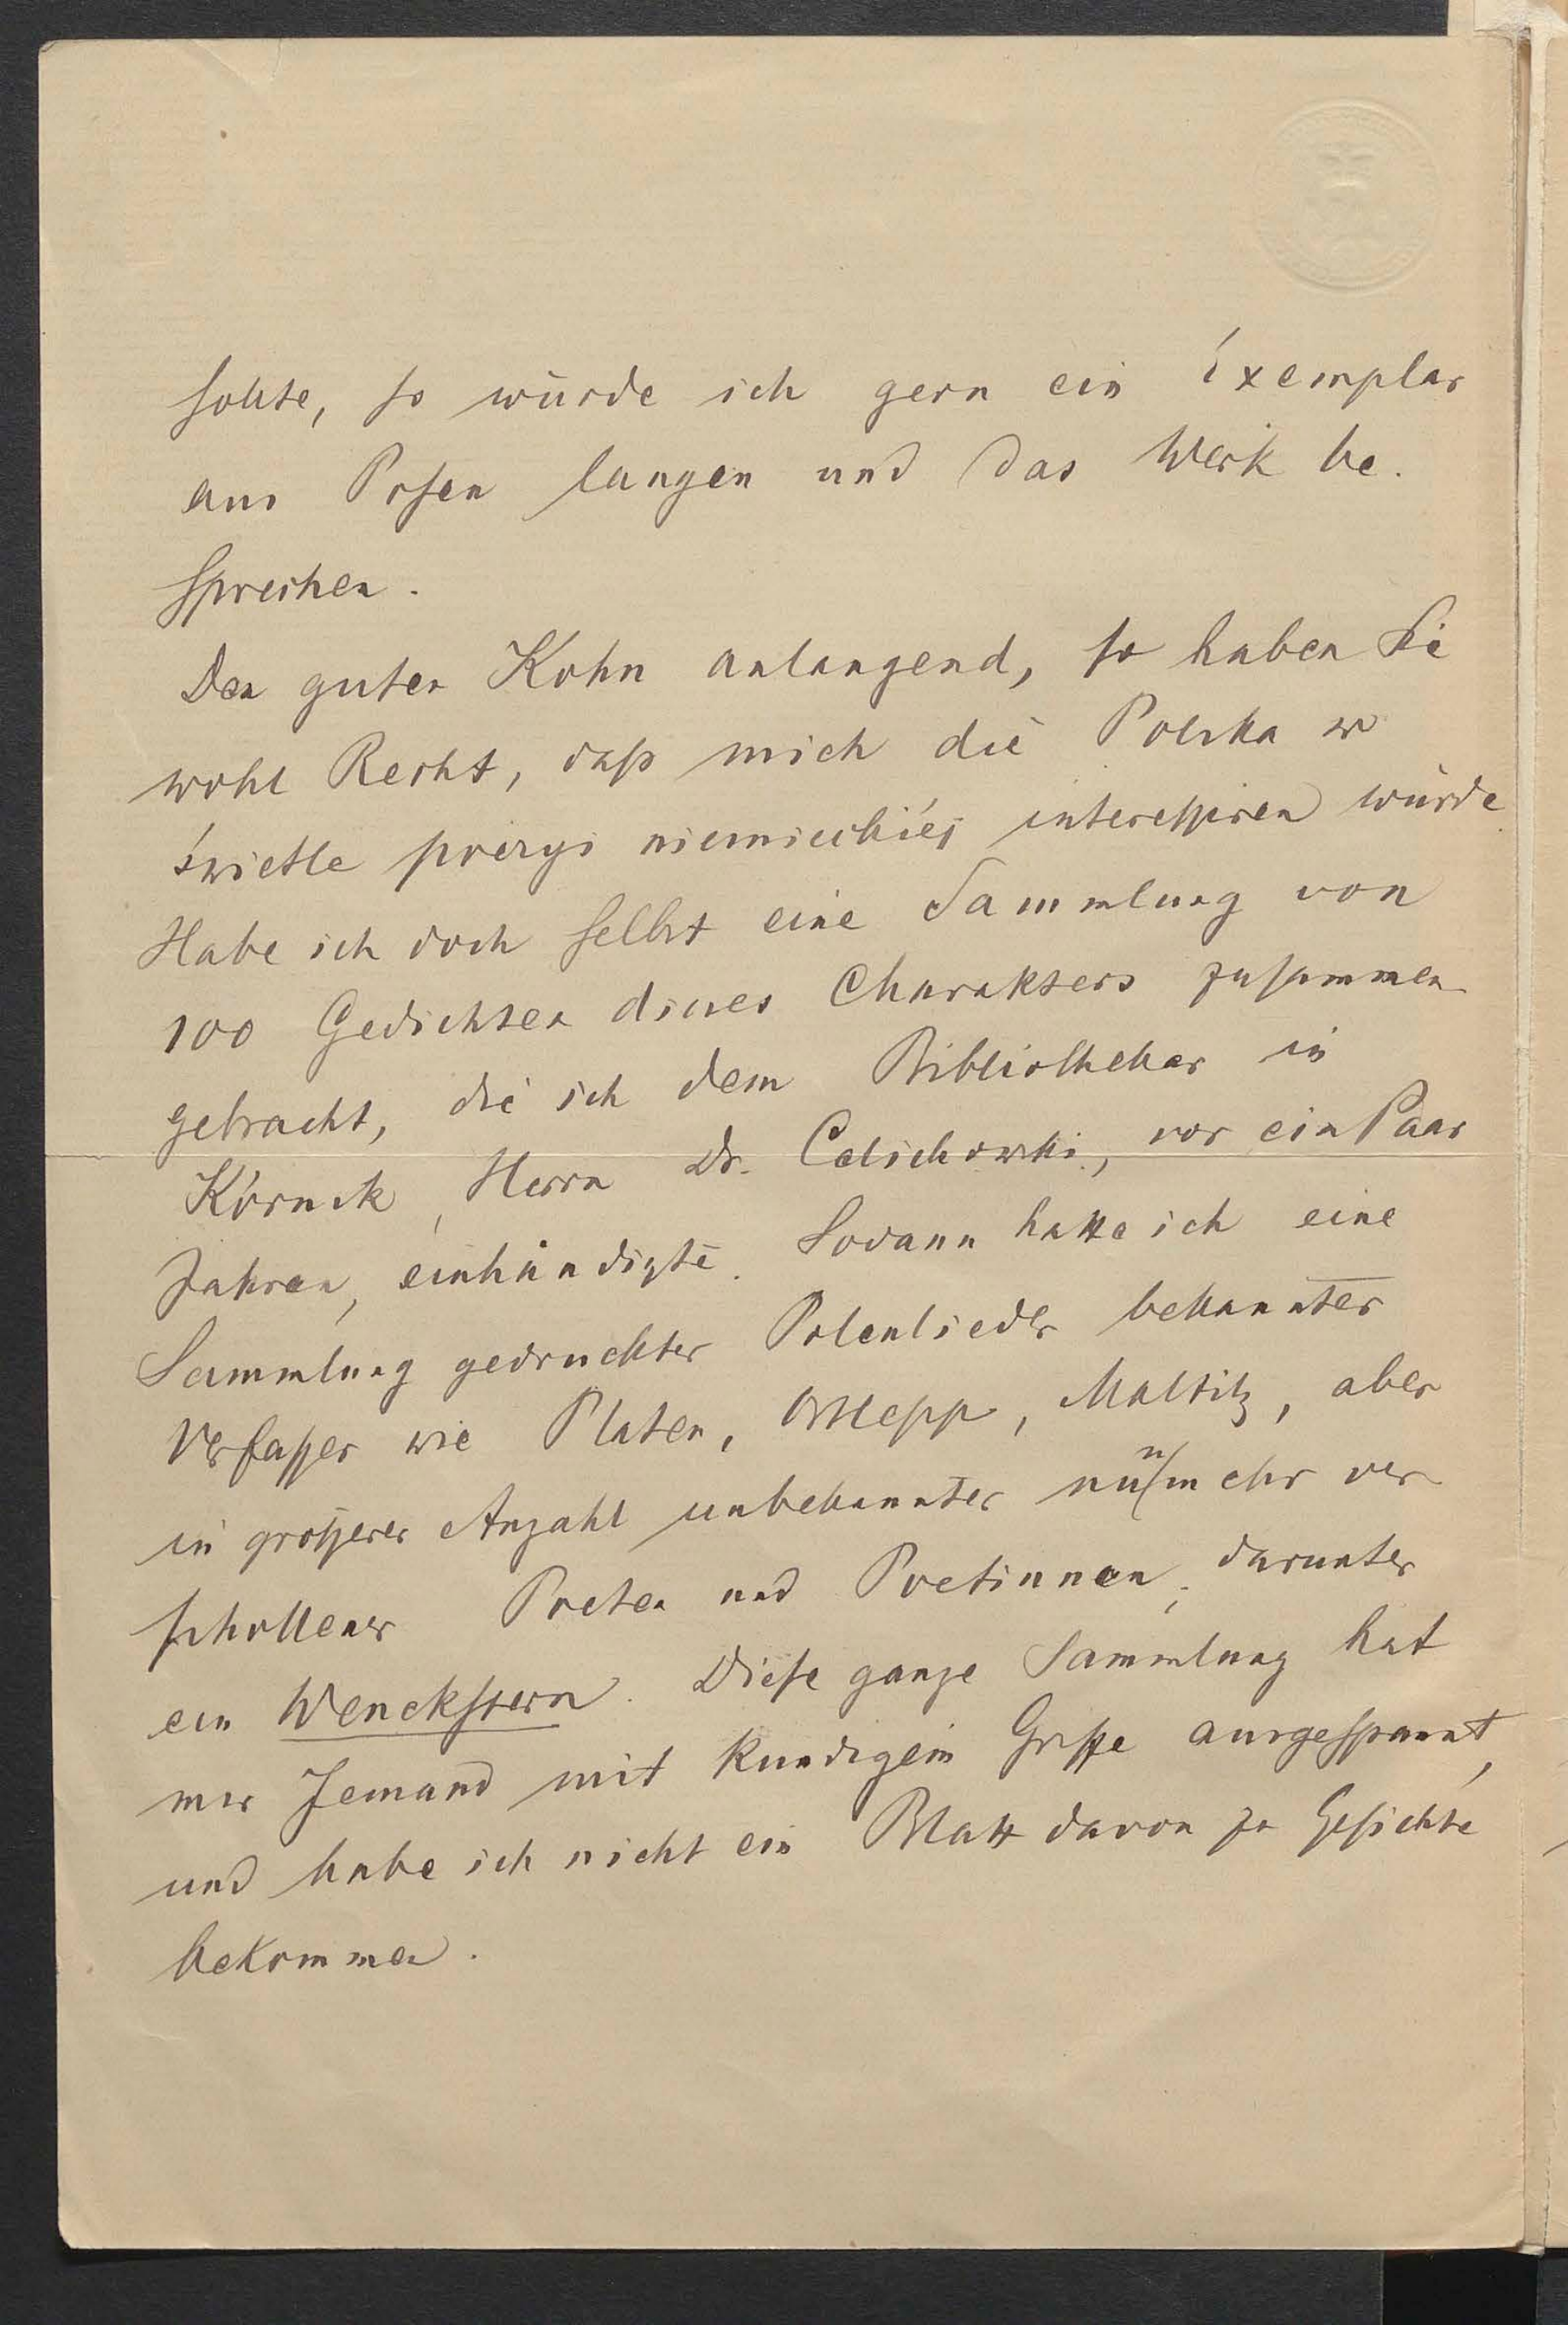 sollte, so würde ich gern ein Exemplar
aus Posen langen und das Werk be-
sprechen.
Den guten Kohn anlangend, so haben Sie
wohl Recht, daß mich die Polska w
świetle poezyi niemieckiéj interessiren würde.
Habe ich doch selbst eine Sammlung von
100 Gedichten dieses Charakters zusammen-
gebracht, die ich dem Bibliothekar in
Kórnik, Herrn Dr. Celichowski, vor ein Paar
Jahren, einhändigte. Sodann hatte ich eine
Sammlung gedruckter Polenlieder bekannter
Verfasser wie Platen, Ortlepp, Maltitz, aber
in größerer Anzahl unbekannter nunmehr ver-
schollener Poeten und Poetinnen, darunter
ein Wenckstern. Diese ganze Sammlung hat
mir Jemand mit kundigem Griffe ausgespannt,
und habe ich nicht ein Blatt davon zu Gesichte
bekommen.